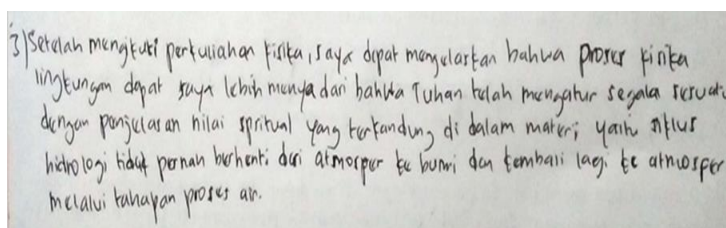 3) Setelah mengikuti perkuliahan fisika, saya dapat menjelaskan bahwa proses fisika
lingkungan dapat saya lebih menyadari bahwa Tuhan telah mengatur segala sesuatu
dengan penjelasan nilai spritual yang terkandung di dalam materi, yaitu siklus
hidrologi tidak pernah berhenti dari atmosper ke bumi dan kembali lagi ke atmosfer
melalui tahapan proses air.